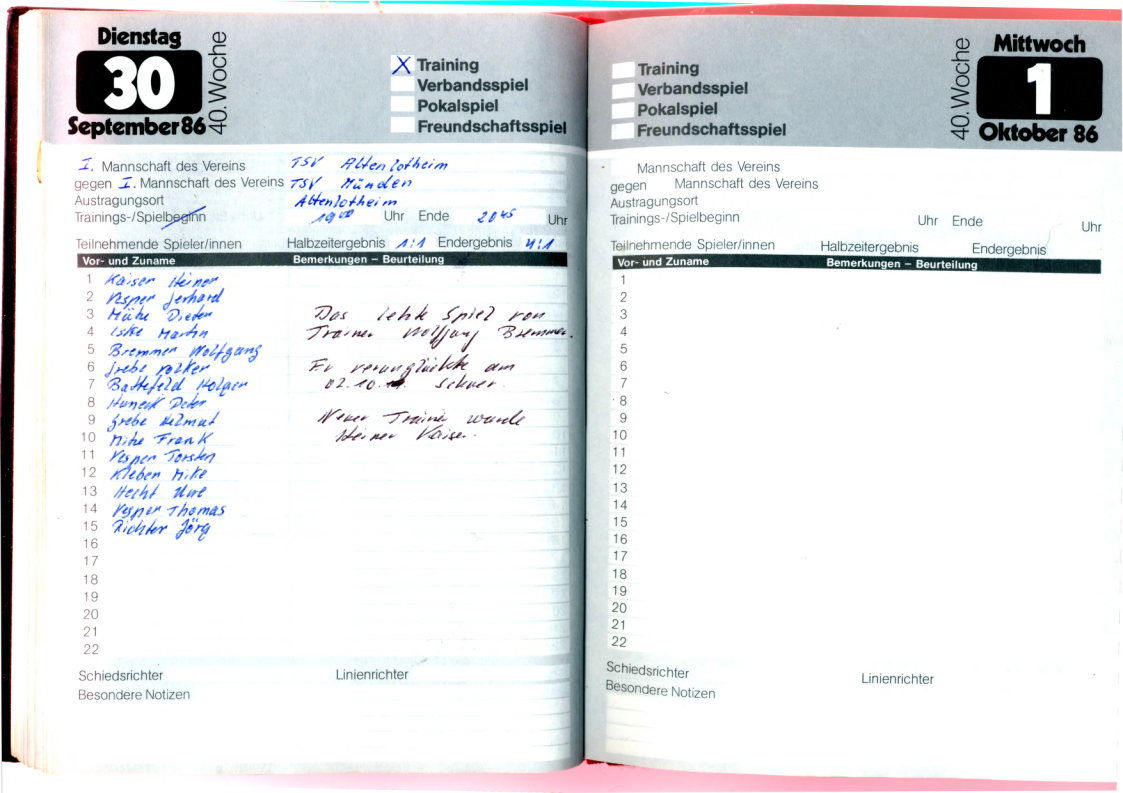 Dienstag
30
September 86
40. Woche
X Training
Verbandsspiel
Pokalspiel
Freundschaftsspiel
I. Mannschaft des Vereins TSV Altenlotheim
gegen I. Mannschaft des Vereins TSV Münden
Austragungsort Altenlotheim
Trainings-/Spielbeginn 19 00 Uhr Ende 20 45 Uhr
Teilnehmende Spieler/innen Halbzeitergebnis 1:1 Endergebnis 4:1
Vor- und Zuname Bemerkungen – Beurteilung
1 Kaiser Heiner
2 Vesper Gerhard
3 Mühe Dieter Das letzte Spiel von
4 Iske Martin Trainer Wolfgang Bremmer.
5 Bremmer Wolfgang
6 Grebe Volker Er verunglückte am
7 Battefeld Holger 02.10. schwer.
8 Huneck Peter
9 Grebe Helmut Neuer Trainer wurde
10 Frank Heiner Kaiser.
11 Vesper Torsten
12 Kleben Mike
13 Hecht Uwe
14 Vesper Thomas
15 Richter Jörg
16
17
18
19
20
21
22
Schiedsrichter Linienrichter
Besondere Notizen
Mittwoch
1
Oktober 86
40. Woche
Training
Verbandsspiel
Pokalspiel
Freundschaftsspiel
Mannschaft des Vereins
gegen Mannschaft des Vereins
Austragungsort
Trainings-/Spielbeginn Uhr Ende Uhr
Teilnehmende Spieler/innen Halbzeitergebnis Endergebnis
Vor- und Zuname Bemerkungen – Beurteilung
1
2
3
4
5
6
7
8
9
10
11
12
13
14
15
16
17
18
19
20
21
22
Schiedsrichter Linienrichter
Besondere Notizen